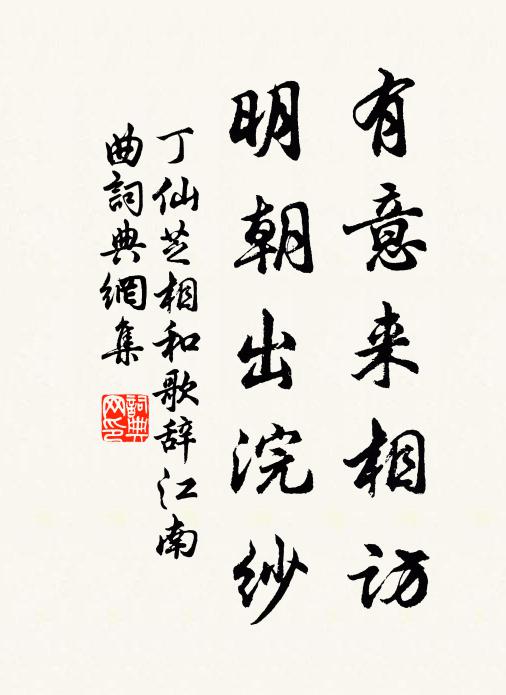 有意来相访
明朝出浣纱
丁仙芝相和歌辞江南
曲詞典網集
詞典网印